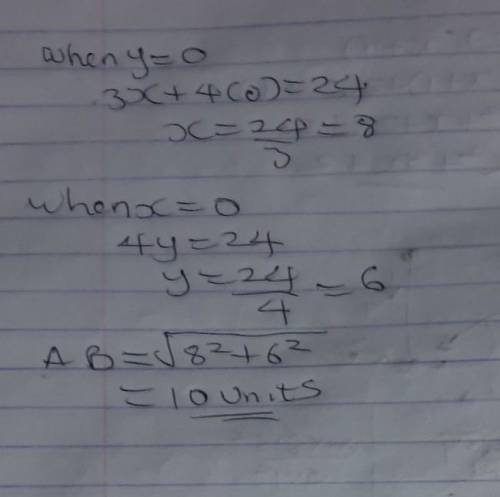 when y=0
3x+4(0)=24
x=24/3=8
when x=0
4y=24
y=24/4=6
AB=√8²+6²
=10 units